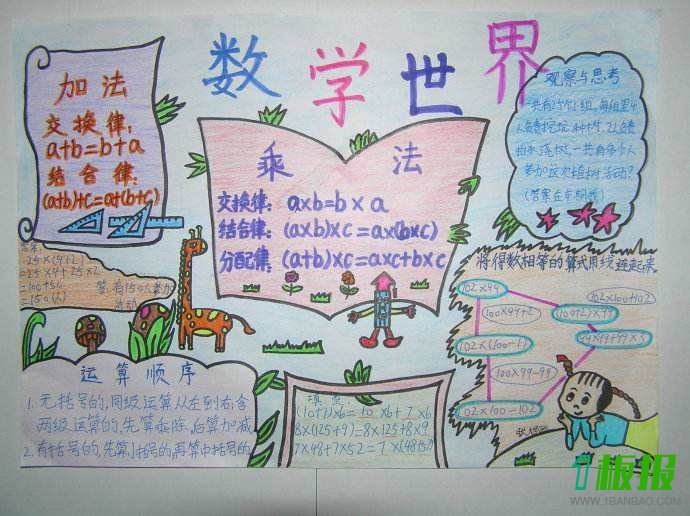 数学世界
加法
交换律:
a+b=b+a
结合律:
(a+b)+c=a+(b+c)
乘法
交换律: a×b=b×a
结合律: (a×b)×c=a×(b×c)
分配律: (a+b)×c=a×c+b×c
观察与思考
一共有25个小组,每组里4
人负责挖坑、种树,2人负责
树,一共有多少人
参加这次植树活动?
25×(4+2)
=25×4+25×2
=100+50
=150(人)
答:有150人参加
活动
将得数相等的算式用线连起来。
102×99
100×99+2
102×100+102
(100+2)×99
102×(100-1)
99+99
100×99-99
102×100-102
运算顺序
1. 无括号的,同级运算从左到右;含
两级运算的,先算乘除,后算加减
2. 有括号的,先算小括号的,再算中括号的
填空
(10+7)×6=10×6+7×6
8×(125+9)=8×125+8×9
7×48+7×52=7×(48+52)
1板报
WWW.1BANBAO.COM